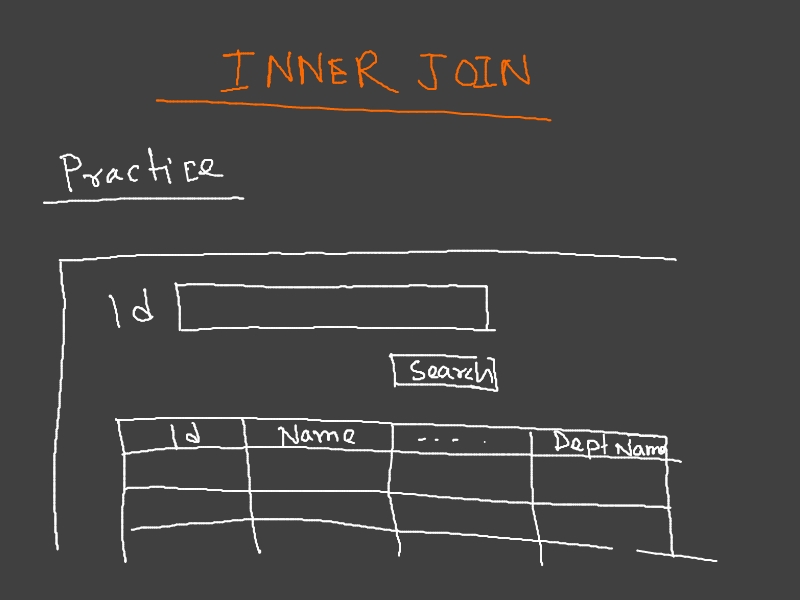 INNER JOIN
Practice
Id
Search
Id Name .... Dept Name